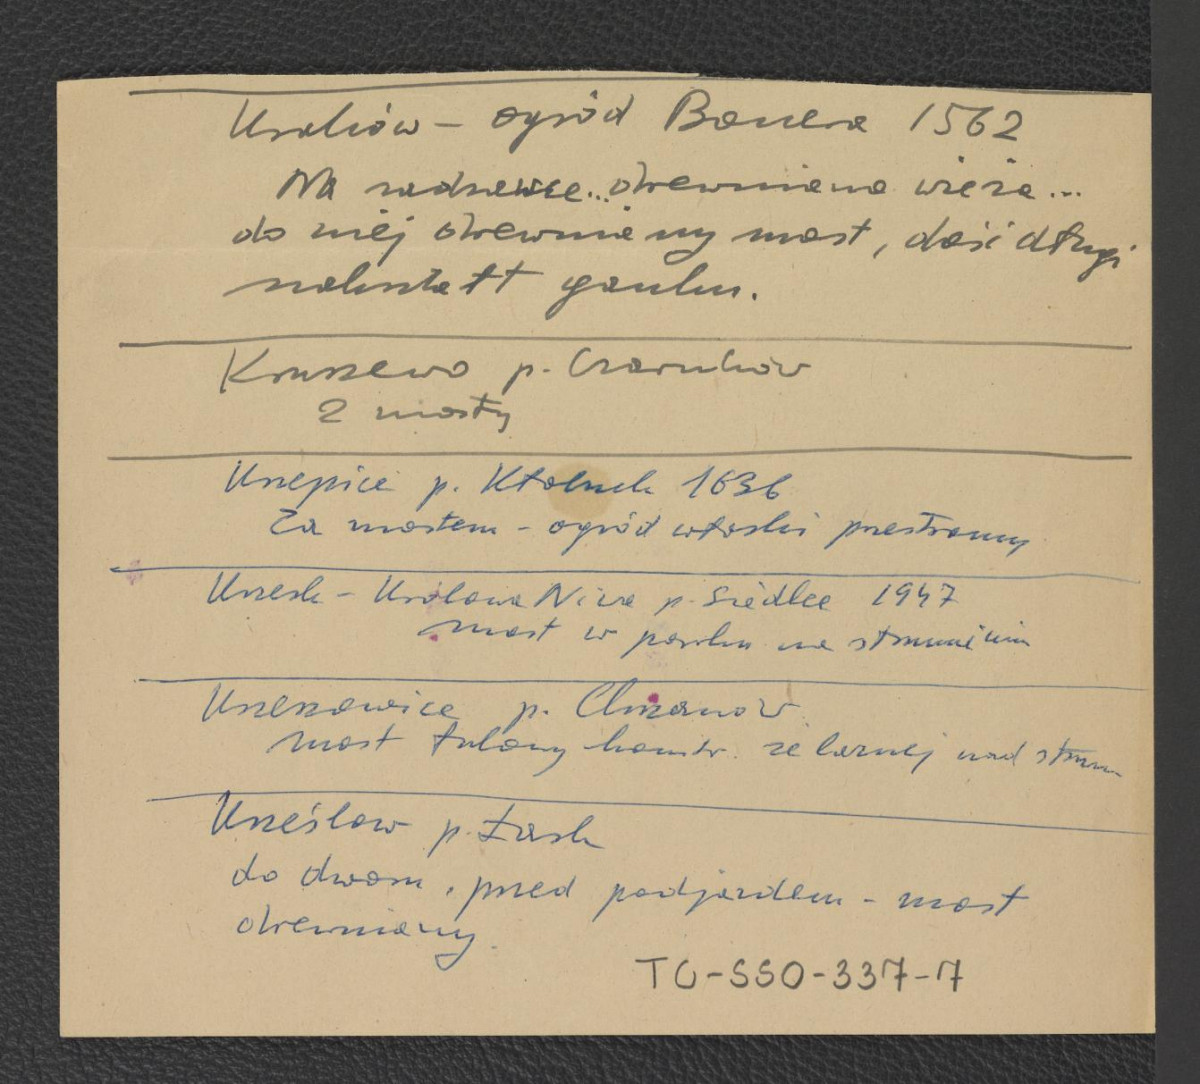 Kraków – ogród Bonera 1562
Na sadzawce... drewniana wieża...
do niej drewniany most, dość długi
nakształt ganku.
Kruszewo p. Czarnków
2 mosty
Krzepice p. Kłobuck 1636
Za mostem – ogród włoski przestronny
Krzesk – Królowa Niwa p. Siedlce 1947
most w parku na strumieniu
Krzeszowice p. Chrzanów
most łukowy konstr. żelaznej nad strum.
Krześlow p. Łask
do dworu, przed podjazdem – most
drewniany.
TC-SSO-337-7